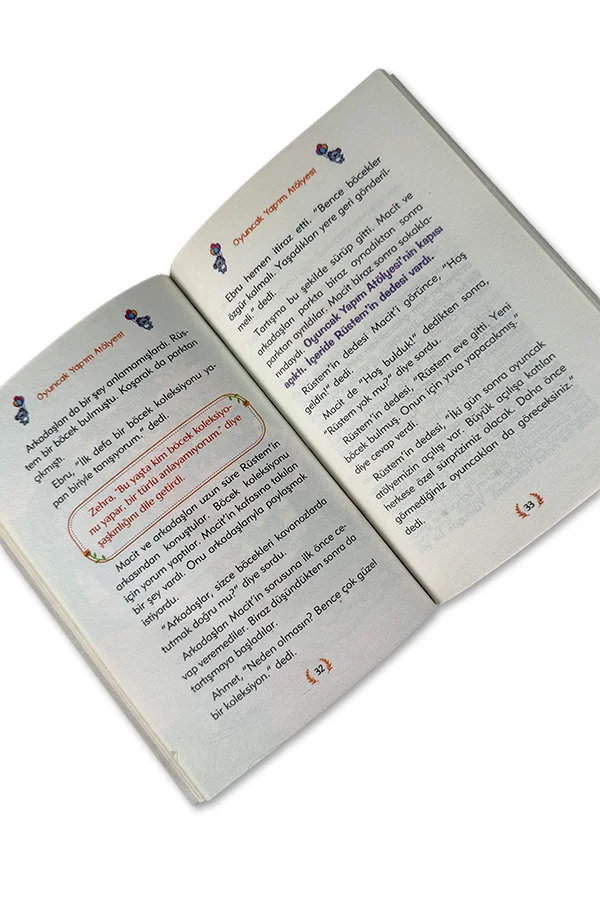 Oyuncak Yapım Atölyesi
Arkadaşları da bir şey anlamamışlardı. Rüs-
tem bir böcek bulmuştu. Koşarak da parktan
çıkmıştı.
Ebru, "İlk defa bir böcek koleksiyonu ya-
pan biriyle tanışıyorum." dedi.
Zehra, "Bu yaşta kim böcek koleksiyo-
nu yapar, bir türlü anlayamıyorum." diye
şaşkınlığını dile getirdi.
Macit ve arkadaşları uzun süre Rüstem'in
arkasından konuştular. Böcek koleksiyonu
için yorum yaptılar. Macit'in kafasına takılan
bir şey vardı. Onu arkadaşlarıyla paylaşmak
istiyordu.
"Arkadaşlar, sizce böcekleri kavanozlarda
tutmak doğru mu?" diye sordu.
Arkadaşları Macit'in sorusuna ilk önce ce-
vap veremediler. Biraz düşündükten sonra da
tartışmaya başladılar.
Ahmet, "Neden olmasın? Bence çok güzel
bir koleksiyon." dedi.
32
Oyuncak Yapım Atölyesi
Ebru hemen itiraz etti. "Bence böcekler
özgür kalmalı. Yaşadıkları yere geri gönderil-
meli." dedi.
Tartışma bu şekilde sürüp gitti. Macit ve
arkadaşları parkta biraz oynadıktan sonra
parktan ayrıldılar. Macit biraz sonra sokakla-
rındaydı. Oyuncak Yapım Atölyesi'nin kapısı
açıktı. İçeride Rüstem'in dedesi vardı.
Rüstem'in dedesi Macit'i görünce, "Hoş
geldin!" dedi.
Macit de "Hoş bulduk!" dedikten sonra,
"Rüstem yok mu?" diye sordu.
Rüstem'in dedesi, "Rüstem eve gitti. Yeni
böcek bulmuş. Onun için yuva yapacakmış."
diye cevap verdi.
Rüstem'in dedesi, "İki gün sonra oyuncak
atölyemizin açılışı var. Büyük açılışa katılan
herkese özel sürprizimiz olacak. Daha önce
görmediğiniz oyuncakları da göreceksiniz."
dedi.
33